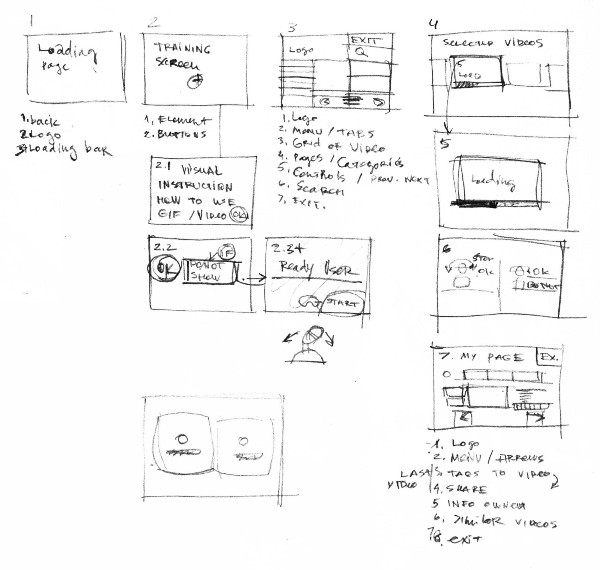 1
Loading
page
1. back
2. Logo
3. Loading bar
2
TRAINING
SCREEN
1, Element
2. Buttons
2.1 VISUAL
INSTRUCTION
HOW TO USE
GIF/VIDEO OK
2.2
IF
OK
DO NOT
SHOW
2.34
Ready User
START
3
EXIT
Logo
1. Logo
2. MENU / TABS
3. Grid of Video
4. Pages / Categories
5. Controls / PREV. NEXT
6. SEARCH
7. EXIT.
4
SELECTED VIDEOS
5
LOAD
5
Loading
6
OK
OK
7. MY PAGE EX.
1. Logo
2. MENU / ARROWS
LAST VIDEO
3. TAGS TO VIDEO
4. SHARE
5 INFO OWNER
6. Similar VIDEOS
exit